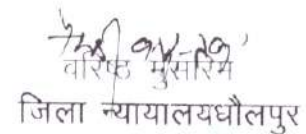 वरिष्ठ मुंसरिम
जिला न्यायालयधौलपुर